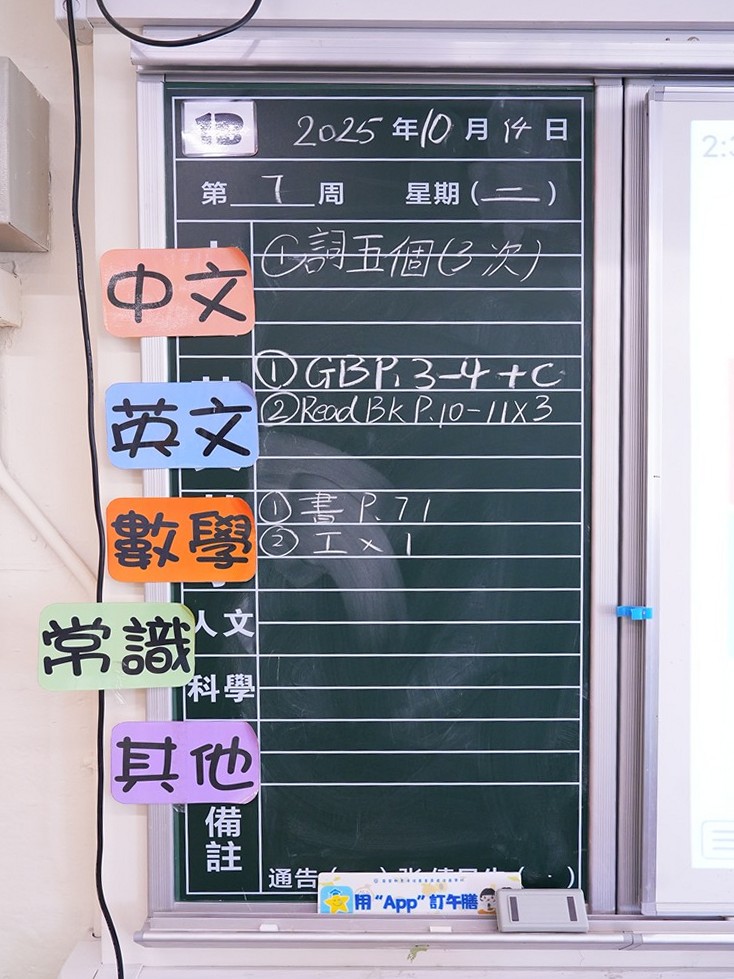 1B 2025年10月14日
第7周 星期(二)
中文 ①詞五個(3次)
英文 ①GBP.3-4+C
②Read Bk P.10-11x3
數學 ①書 P.71
②工x1
人文
常識
科學
其他
備註
通告
用“App”訂午膳
2:3